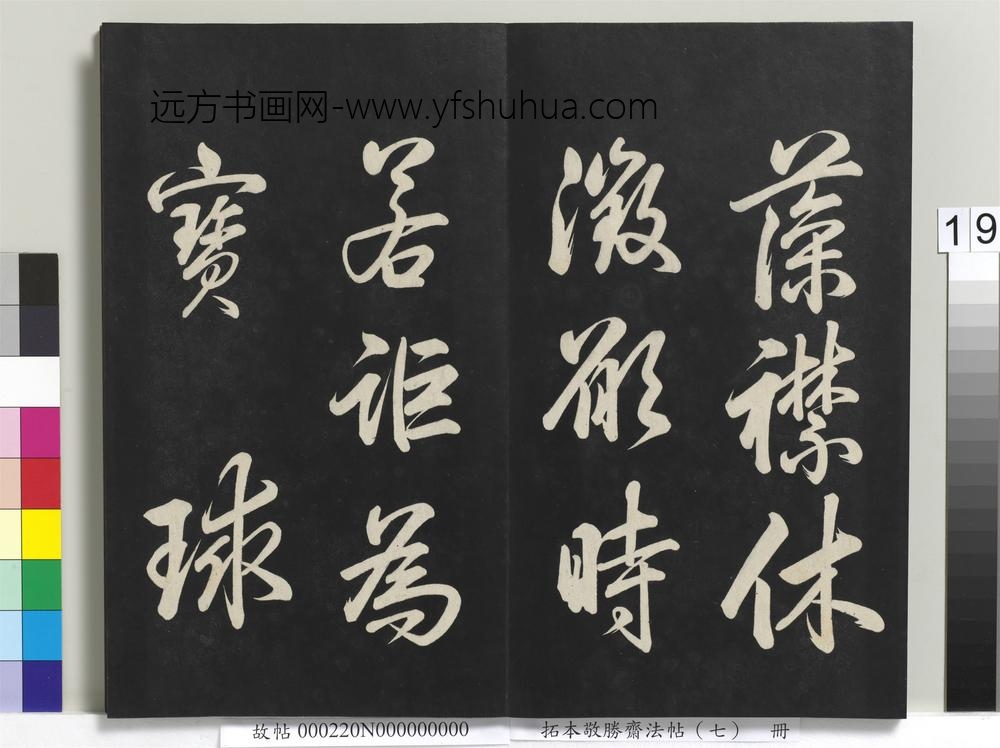 远方书画网-www.yfshuhua.com
藻襟休
徵欲時
若詎為
寶球
19
故帖 000220N000000000
拓本敬勝齋法帖（七） 冊